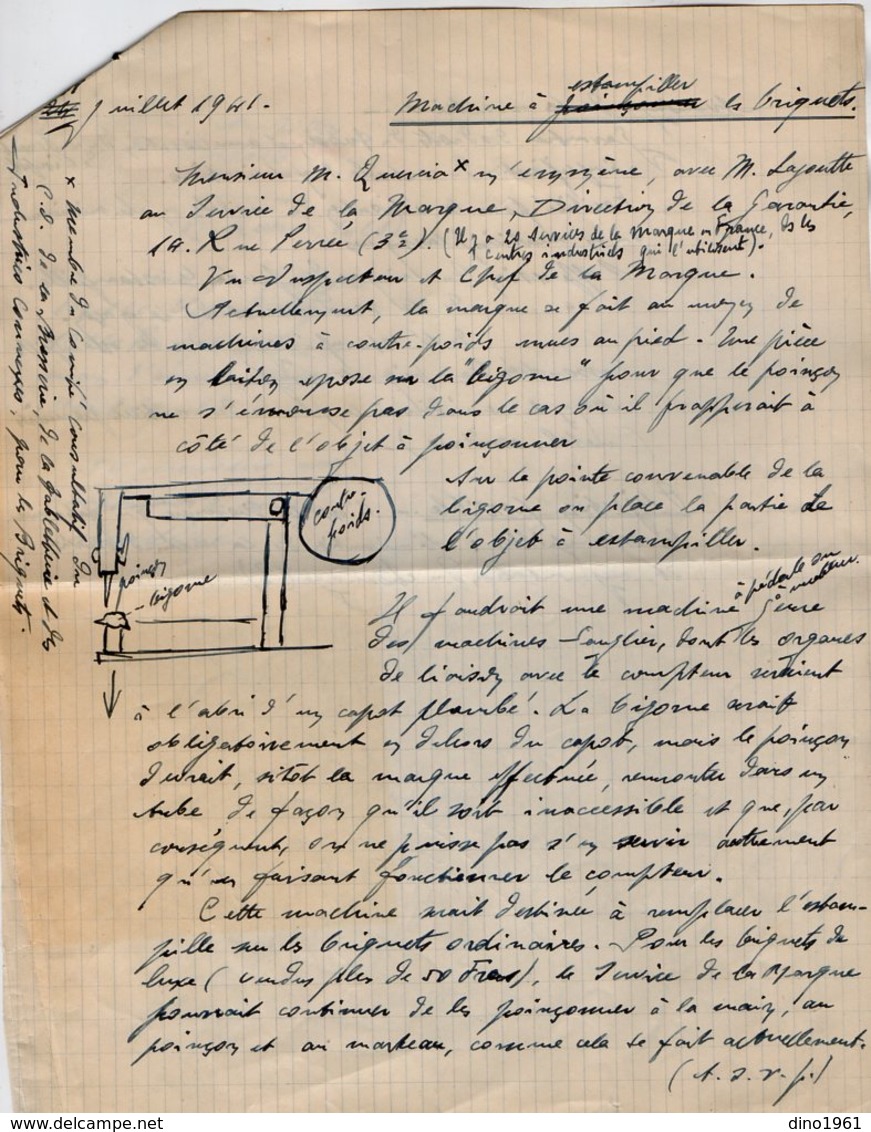 juillet 1941.
Machine à estampiller poinçonner les briquets.
Monsieur M. Quercia x m'emmène, avec M. Lagoutte
au Service de la Marque, Direction de la Garantie,
Rue Perrée (3e). (Il y a 21 services de la marque en France, ds les
centres industriels qui l'utilisent).
Vu Inspecteur et Chef de la Marque.
Actuellement, la marque se fait au moyen de
machines à contre-poids mues au pied. Une pièce
en laiton repose sur la "bigorne" pour que le poinçon
ne s'émousse pas dans le cas où il frapperait à
côté de l'objet à poinçonner
Sur la pointe convenable de la
bigorne on place la partie de
l'objet à estampiller.
contre-
poids.
poinçon
- bigorne
à pédale ou
à moteur.
Il faudrait une machine genre
des machines Sanglier, dont les organes
de liaison avec le compteur seraient
à l'abri d'un capot plombé. La bigorne serait
obligatoirement en dehors du capot, mais le poinçon
devrait, sitôt la marque effectuée, remonter dans un
tube de façon qu'il soit inaccessible et que, par
conséquent, on ne puisse pas s'en servir autrement
qu'en faisant fonctionner le compteur.
Cette machine serait destinée à remplacer l'estam-
pille sur les briquets ordinaires. Pour les briquets de
luxe (vendus plus de 50 Frcs), le Service de la Marque
pourrait continuer de les poinçonner à la main, au
poinçon et au marteau, comme cela se fait actuellement.
(T. S. V. p.)
x Membre du Comité Consultatif du
C.O. de la Brosserie, de la Tabletterie et des
Industries Connexes, pour les Briquets.
dino1961